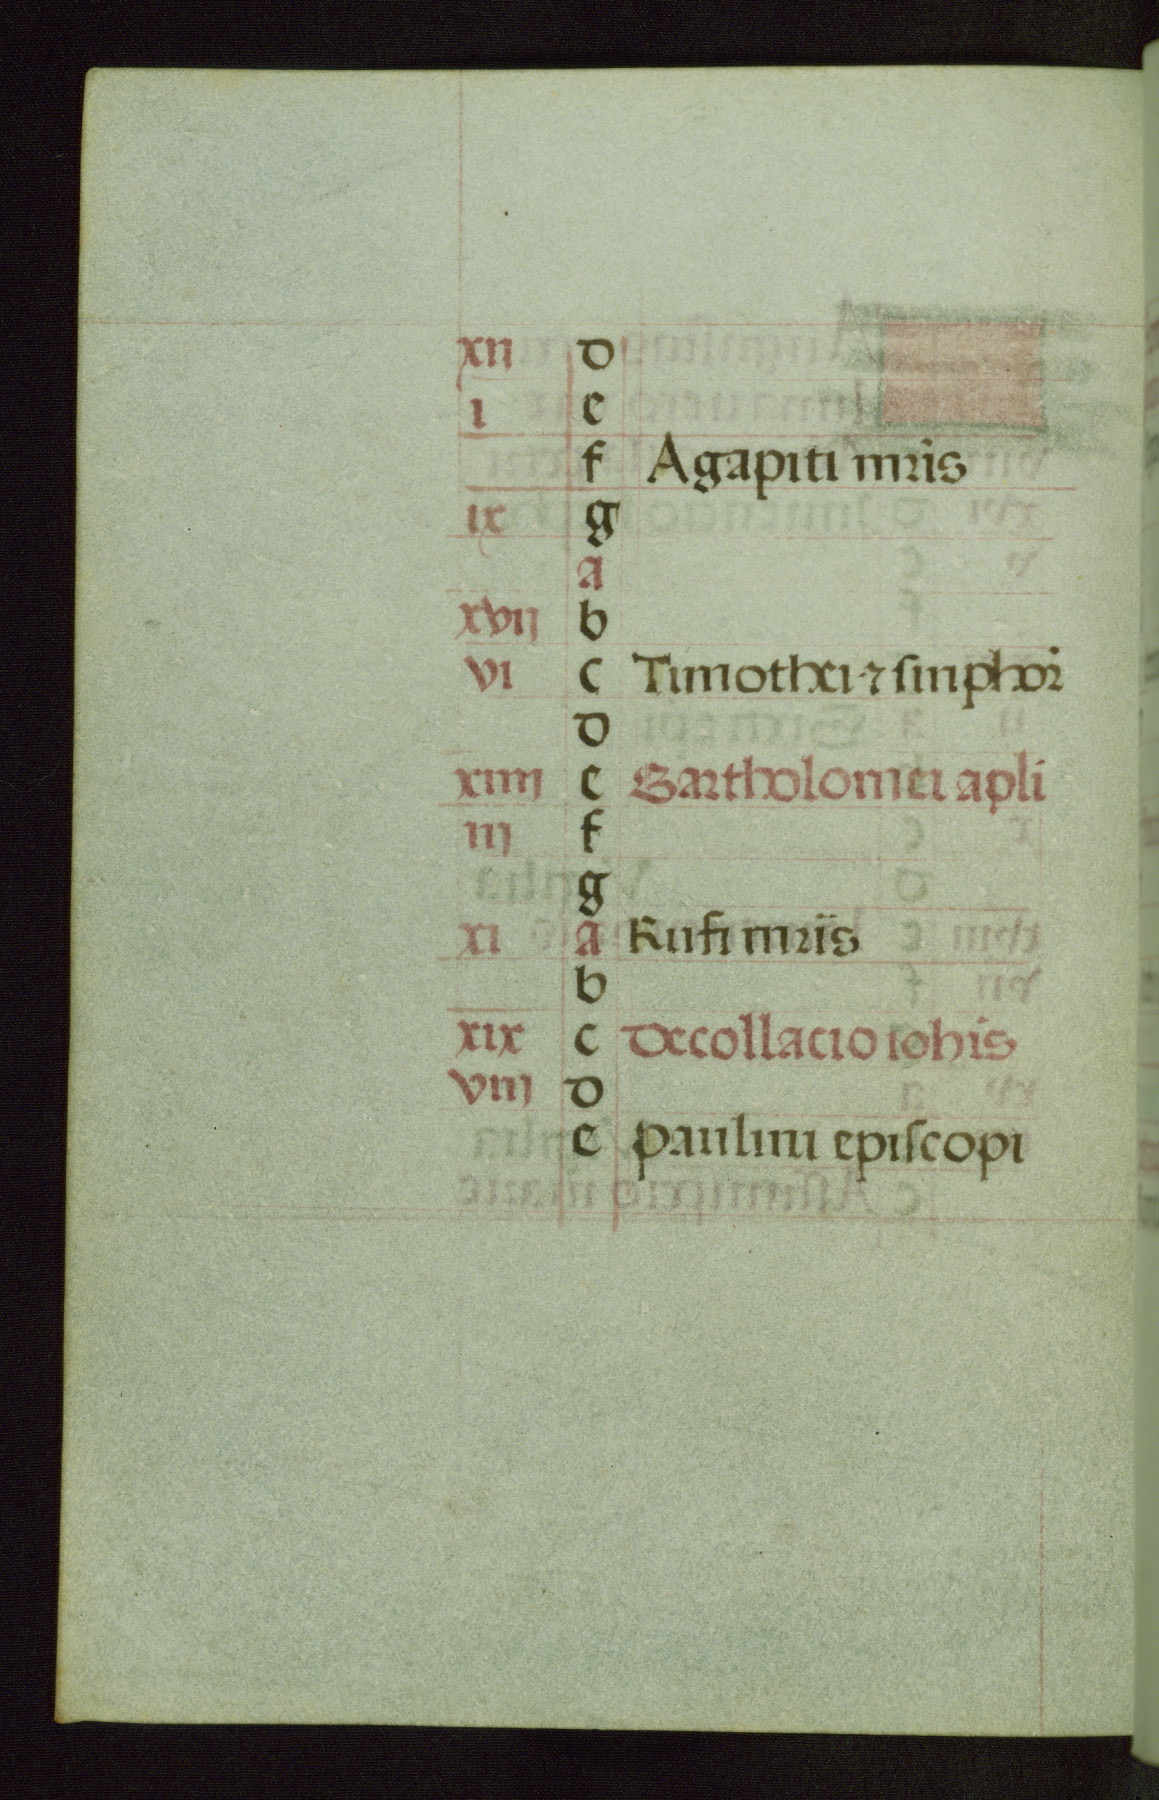 xii d
i e
f Agapiti mr̃is
ix g
a
xvij b
vi c Timothei ⁊ sinphor̃
d
xiiij e Bartholomei apl̃i
iij f
g
xi a Rufi mr̃is
b
xix c decollacio ioh̃is
viij d
e paulini episcopi